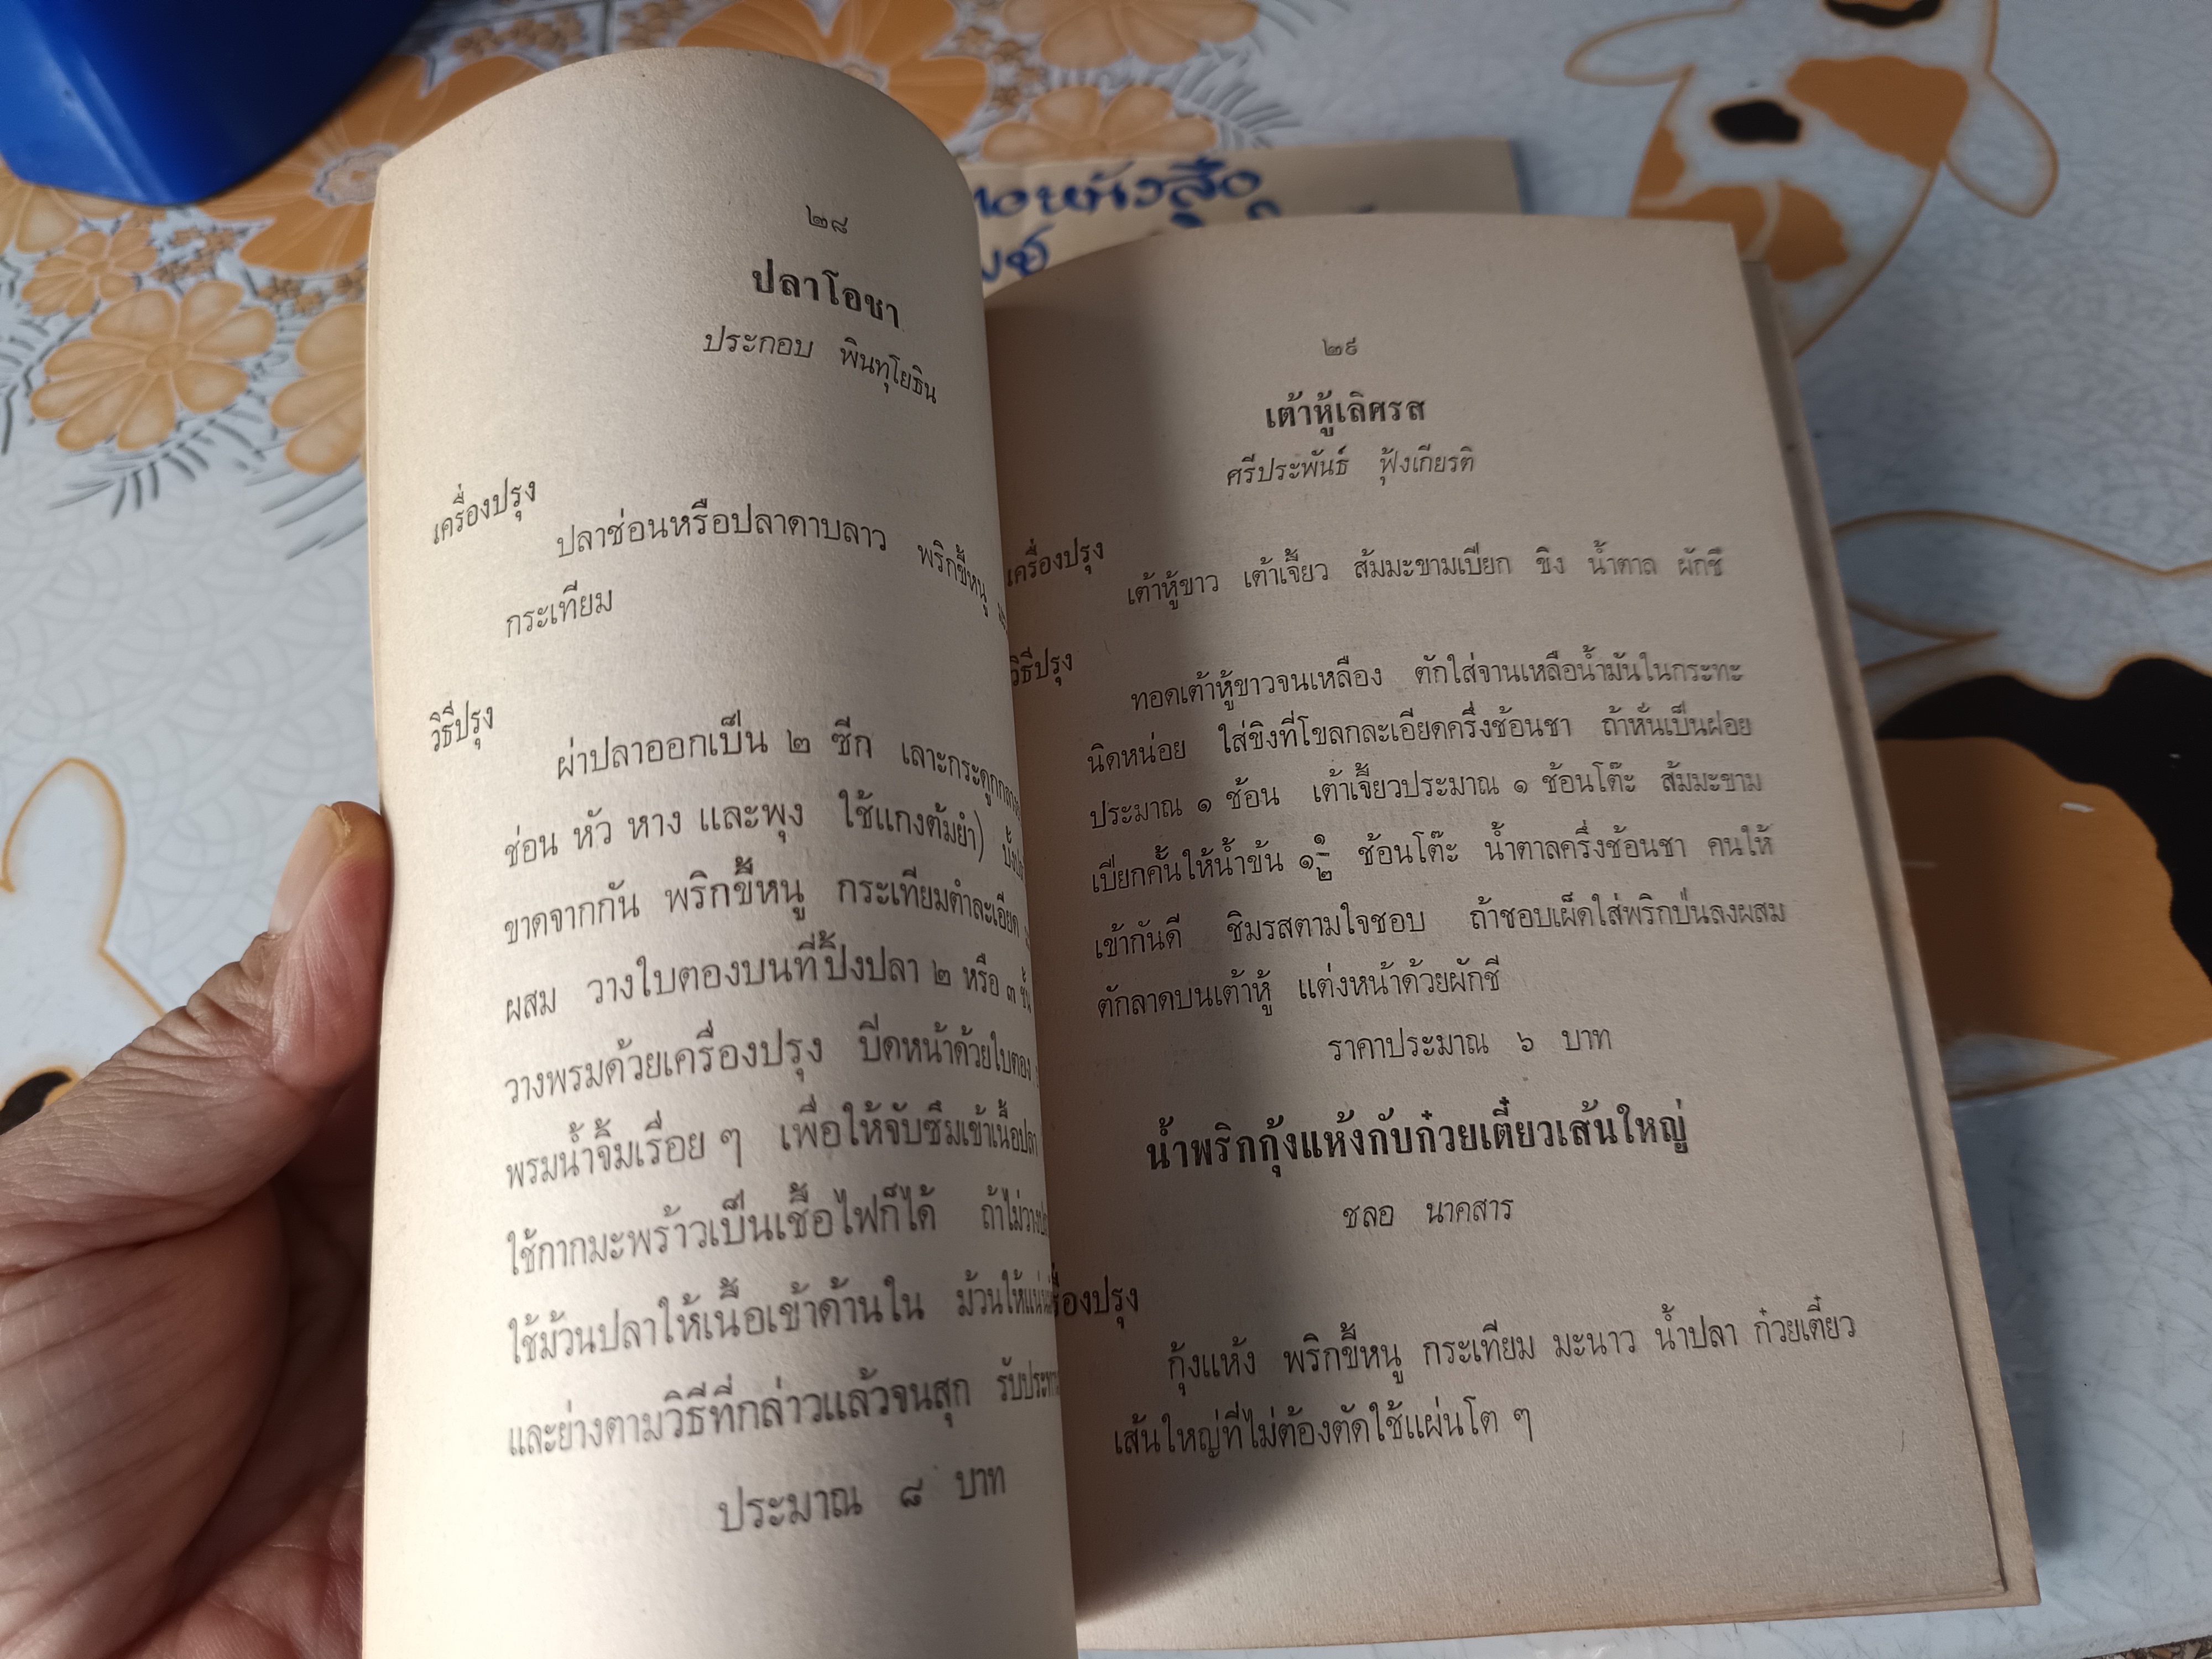 ๒๘
ปลาโอชา
ประกอบ พินทุโยธิน
เครื่องปรุง
ปลาช่อนหรือปลาดาบลาว พริกขี้หนู
กระเทียม
วิธีปรุง
ผ่าปลาออกเป็น ๒ ซีก เลาะกระดูกกลาง
ช่อน หัว หาง และพุง ใช้แกงต้มยำ)
ขาดจากกัน พริกขี้หนู กระเทียมตำละเอียด
ผสม วางใบตองบนที่ปิ้งปลา ๒ หรือ ๓ ชั้น
วางพรมด้วยเครื่องปรุง ปิดหน้าด้วยใบตอง
พรมน้ำจิ้มเรื่อย ๆ เพื่อให้จับซึมเข้าเนื้อปลา
ใช้กากมะพร้าวเป็นเชื้อไฟก็ได้ ถ้าไม่วาง
ใช้ม้วนปลาให้เนื้อเข้าด้านใน ม้วนให้แน่น
และย่างตามวิธีที่กล่าวแล้วจนสุก
ประมาณ ๘ บาท
๒๙
เต้าหู้เลิศรส
ศรีประพันธ์ ฟุ้งเกียรติ
เครื่องปรุง
เต้าหู้ขาว เต้าเจี้ยว ส้มมะขามเปียก ขิง น้ำตาล ผักชี
วิธีปรุง
ทอดเต้าหู้ขาวจนเหลือง ตักใส่จานเหลือน้ำมันในกระทะ
นิดหน่อย ใส่ขิงที่โขลกละเอียดครึ่งช้อนชา ถ้าหั่นเป็นฝอย
ประมาณ ๑ ช้อน เต้าเจี้ยวประมาณ ๑ ช้อนโต๊ะ ส้มมะขาม
เปียกคั้นให้น้ำข้น ๑ ๑/๒ ช้อนโต๊ะ น้ำตาลครึ่งช้อนชา คนให้
เข้ากันดี ชิมรสตามใจชอบ ถ้าชอบเผ็ดใส่พริกป่นลงผสม
ตักลาดบนเต้าหู้ แต่งหน้าด้วยผักชี
ราคาประมาณ ๖ บาท
น้ำพริกกุ้งแห้งกับก๋วยเตี๋ยวเส้นใหญ่
ชลอ นาคสาร
รื่องปรุง
กุ้งแห้ง พริกขี้หนู กระเทียม มะนาว น้ำปลา ก๋วยเตี๋ยว
เส้นใหญ่ที่ไม่ต้องตัดใช้แผ่นโต ๆ